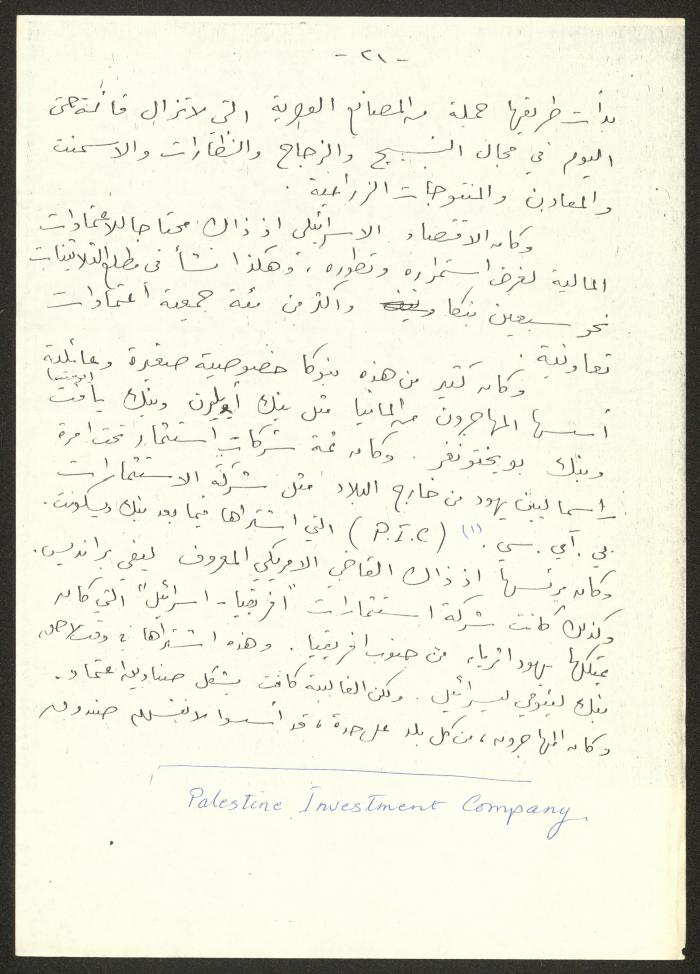 - ٢١ -
بدأت طريقها جملة من المصانع العصرية التي لا تزال قائمة حتى
اليوم في مجال النسيج والزجاج والنظارات والاسمنت
والمعادن والمنتوجات الزراعية .
وكان الاقتصاد الاسرائيلي اذ ذاك محتاجا للاعتمادات
المالية لغرض استمراره وتطوره ، وهكذا نشأ في مطلع الثلاثينات
نحو سبعين بنكا واكثر من مئة جمعية اعتمادات
تعاونية .
وكان كثير من هذه بنوكا خصوصية صغيرة وعائلية
أسسها المهاجرون من المانيا مثل بنك وبنك يافت
وبنك بويختونغر . وكان ثمة شركات استثمار تحت امرة
راسماليين يهود من خارج البلاد مثل شركة الاستثمارات
بي . آي . سي . (١) (P.I.C) التي اشتراها فيما بعد بنك ديسكونت .
وكان يرئسها اذ ذاك القاضي الامريكي المعروف ليفي برانديس .
وكذلك كانت شركة استثمارات "افريقيا - اسرائيل" التي كان
يمتلكها يهود اثرياء من جنوب افريقيا . وهذه اشتراها في وقت لاحق
بنك ليئومي ليسرائيل . ولكن الغالبية كانت بشكل صناديق اعتماد .
وكان المهاجرون ، من كل بلد على حدة ، قد أسسوا لانفسهم صندوق
Palestine Investment Company